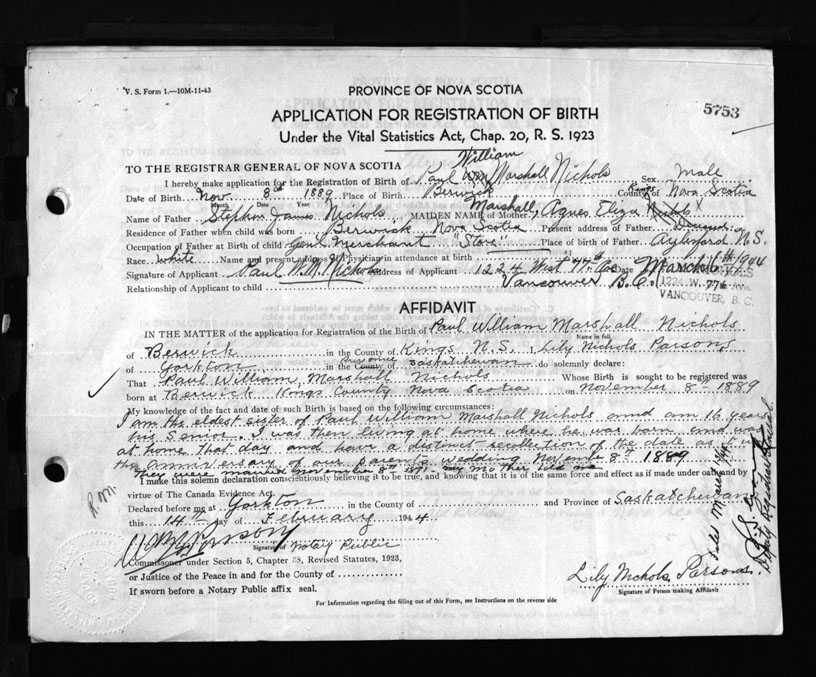 V. S. Form 1.—10M-11-43
PROVINCE OF NOVA SCOTIA
5753
APPLICATION FOR REGISTRATION OF BIRTH
Under the Vital Statistics Act, Chap. 20, R. S. 1923
William
TO THE REGISTRAR GENERAL OF NOVA SCOTIA
I hereby make application for the Registration of Birth of Paul Wm Marshall Nichols Sex Male
Date of Birth Nov 8th 1889 Place of Birth Berwick County of Kings Nova Scotia
Month Day Year
Name of Father Stephen James Nichols MAIDEN NAME of Mother Marshall, Agnes Eliza
Residence of Father when child was born Berwick Nova Scotia Present address of Father Deceased
Occupation of Father at Birth of child Genl Merchant "Store" Place of birth of Father Aylesford N.S.
Race White Name and present address of Physician in attendance at birth
Signature of Applicant Paul W. M. Nichols Address of Applicant 1224 West 77th Ave Date March 6th 1944
Relationship of Applicant to child Vancouver B.C.
1224 W. 77th Ave.
VANCOUVER, B. C.
AFFIDAVIT
IN THE MATTER of the application for Registration of the Birth of Paul William Marshall Nichols
Name in full
of Berwick in the County of Kings N.S. I, Lily Nichols Parsons
of Yorkton in the County of Province Saskatchewan do solemnly declare:
That Paul William Marshall Nichols Whose Birth is sought to be registered was
born at Berwick Kings County Nova Scotia on November 8th 1889
My knowledge of the fact and date of such Birth is based on the following circumstances:
I am the eldest sister of Paul William Marshall Nichols and am 16 years
his senior. I was then living at home where he was born and was
at home that day and have a distinct recollection of the date as it was
the anniversary of our parents wedding November 8th 1889
They were married November 8th
I make this solemn declaration conscientiously believing it to be true, and knowing that it is of the same force and effect as if made under oath and by
virtue of The Canada Evidence Act.
Declared before me at Yorkton in the County of and Province of Saskatchewan
this 14th day of February 1944
Signature of Notary Public
Commissioner under Section 5, Chapter 38, Revised Statutes, 1923,
or Justice of the Peace in and for the County of
If sworn before a Notary Public affix seal.
Lily Nichols Parsons
Signature of Person making Affidavit
For Information regarding the filling out of this Form, see Instructions on the reverse side
Deputy Registrar General